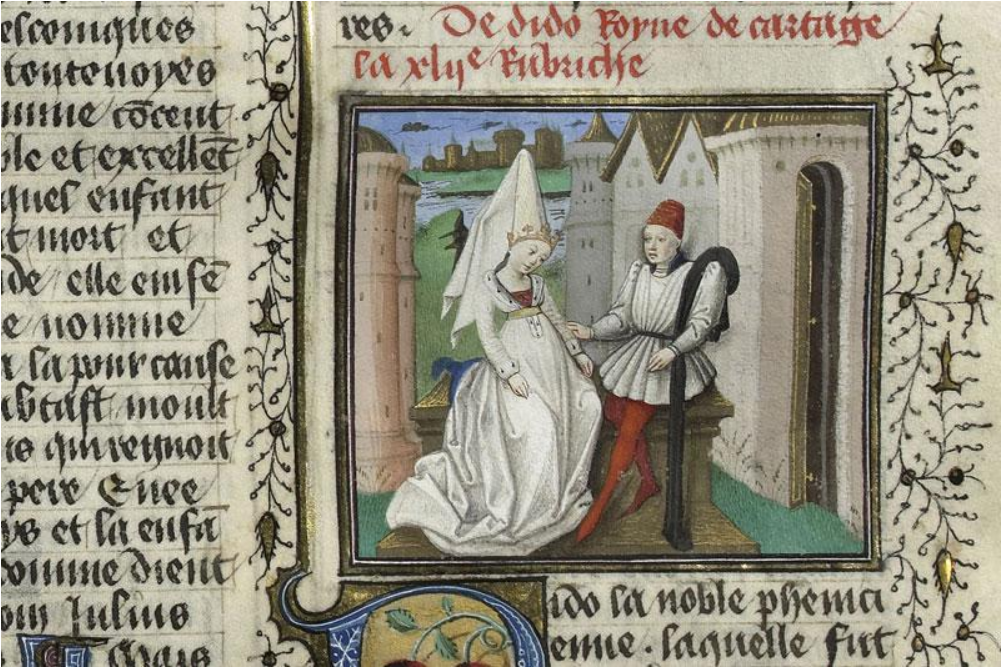 elconiques
tentenoyes
mme cōcent
ble et excellēt
quel enfant
t mort et
de elle ensē
e nomme
a la pour cause
moult
is qui regnoit
pere Enee
os et la enfā
comme dient
om Julius
Mais
res. De dido Royne de cartage
la xlije Rubriche
Dido la noble pheniti
enne. laquelle fut